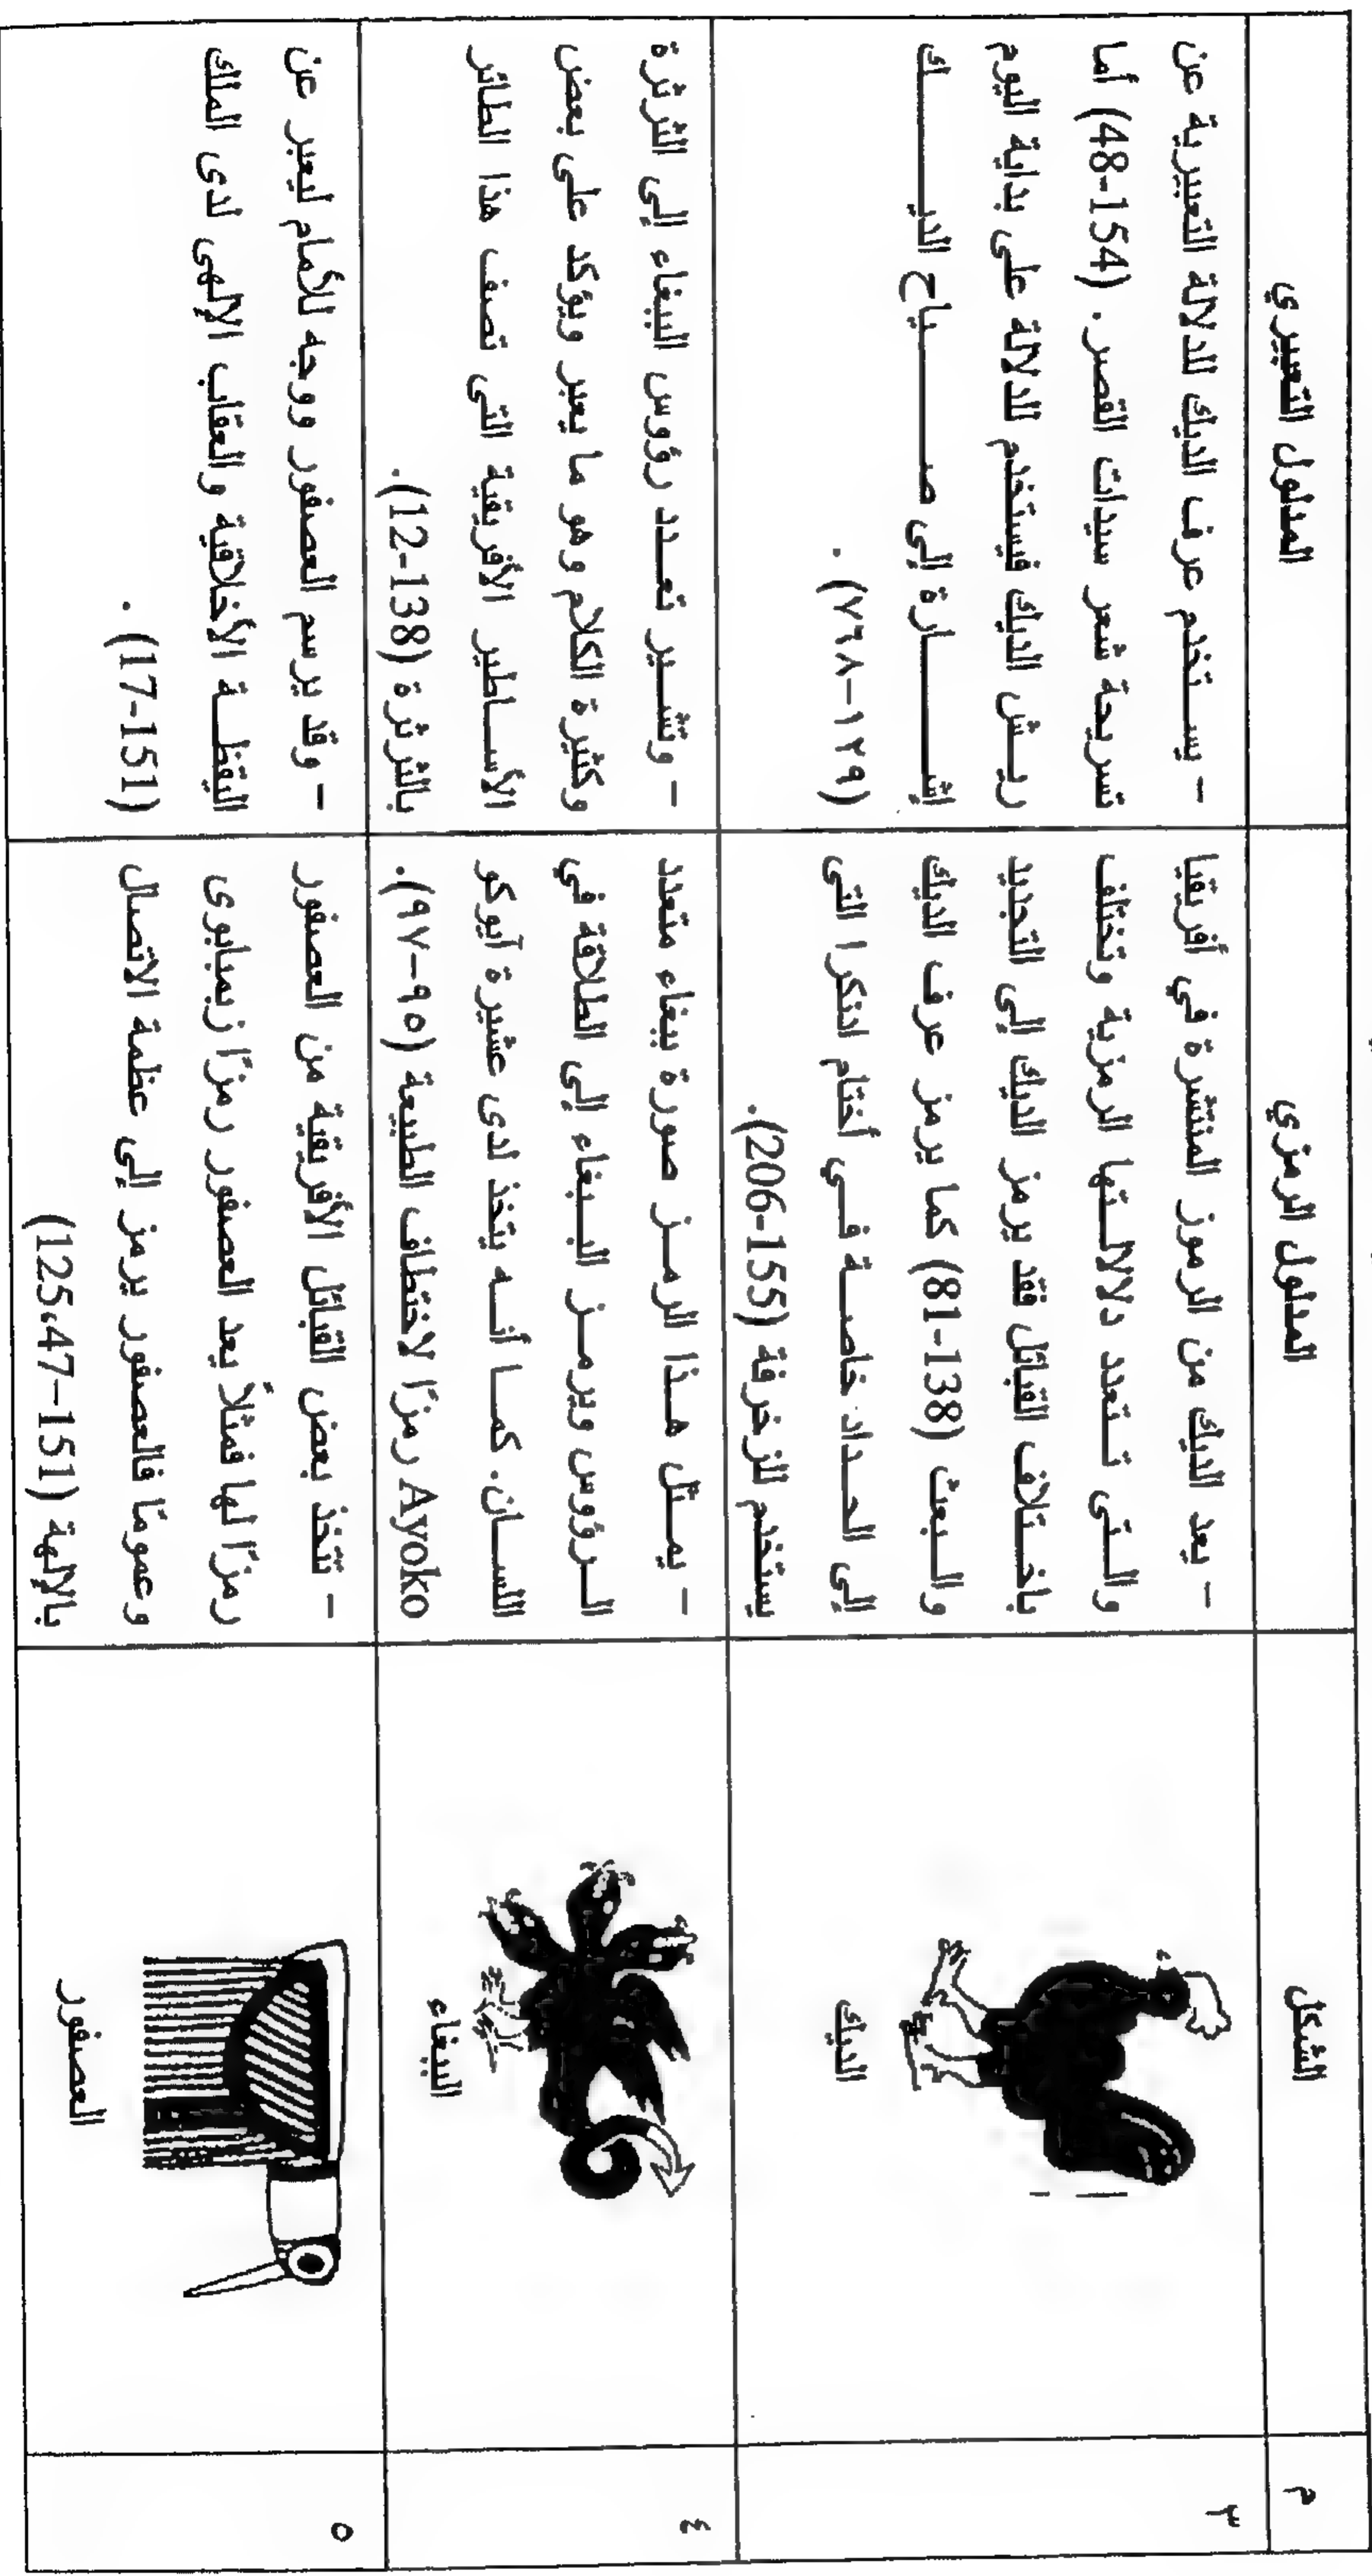 م
الشكل
المدلول الرمزي
المدلول التعبيري
٣
الديك
– يعد الديك من الرموز المنتشرة في أفريقيا
والتى تتعدد دلالاتها الرمزية وتختلف
باختلاف القبائل فقد يرمز الديك إلى التجديد
والبعث (138-81) كما يرمز عرف الديك
إلى الحداد خاصة في أختام ادنكرا التى
يستخدم للزخرفة (155-206).
– يستخدم عرف الديك للدلالة التعبيرية عن
تسريحة شعر سيدات القصر. (154-48) أما
ريش الديك فيستخدم للدلالة على بداية اليوم
إشارة إلى صياح الديك
(١٢٩-٧٦٨) .
٤
الببغاء
– يمثل هذا الرمز صورة ببغاء متعدد
الرؤوس ويرمز الببغاء إلى الطلاقة في
اللسان. كما أنه يتخذ لدى عشيرة آيوكو
Ayoko رمزًا لاختطاف الطبيعة (٩٥-٩٧).
– وتشير تعدد رؤوس الببغاء إلى الثرثرة
وكثيرة الكلام وهو ما يعبر ويؤكد على بعض
الأساطير الأفريقية التى تصف هذا الطائر
بالثرثرة (138-12).
٥
العصفور
– تتخذ بعض القبائل الأفريقية من العصفور
رمزًا لها فمثلاً يعد العصفور رمزًا زيمبابوى
وعمومًا فالعصفور يرمز إلى عظمة الاتصال
بالإلهة (151–47،125)
– وقد يرسم العصفور ووجه للأمام ليعبر عن
اليقظة الأخلاقية والعقاب الإلهى لدى الملك
(17-151) .